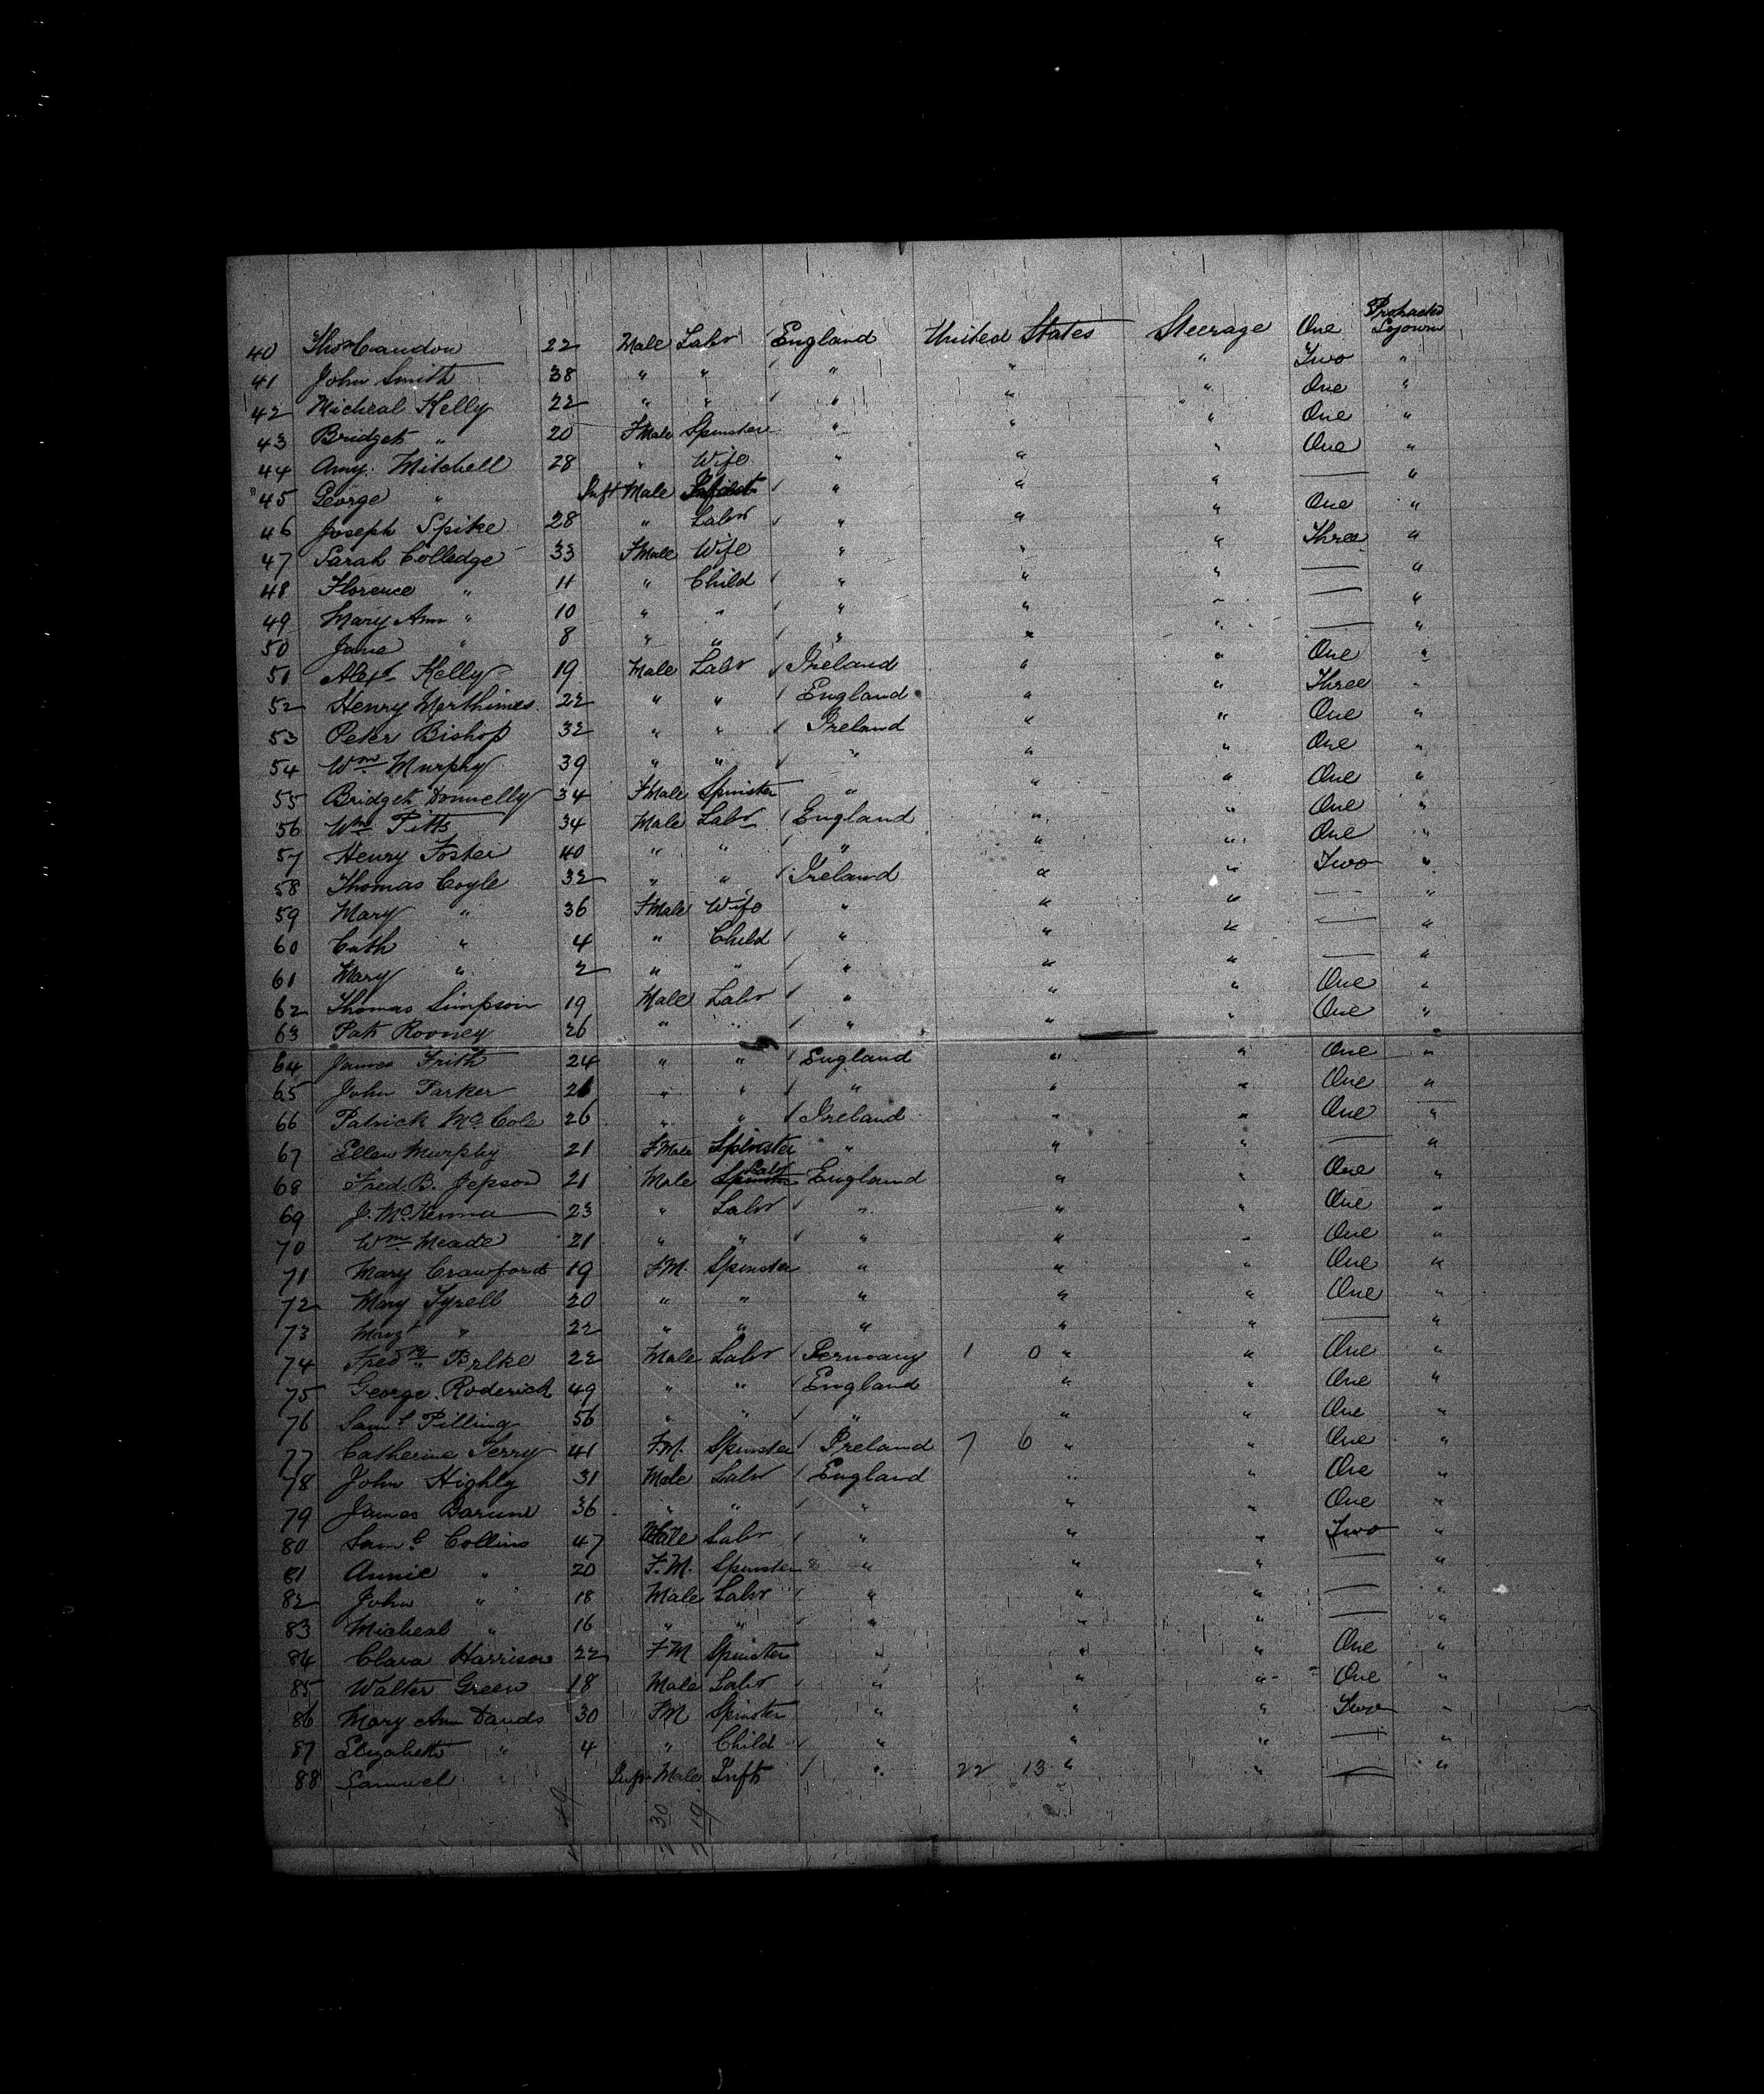 40 Thos Candon 22 Male Labr England United States Steerage One Protracted Sojourn
41 John Smith 38 " " " " " Two "
42 Micheal Kelly 22 " " " " " One "
43 Bridget " 20 FMale Spinster " " " One "
44 Amy Mitchell 28 " Wife " " " One "
45 George " Inft Male Infant " " " — "
46 Joseph Spike 28 " Labr " " " One "
47 Sarah Colledge 33 FMale Wife " " " Three "
48 Florence " 11 " Child " " " — "
49 Mary Ann " 10 " " " " " — "
50 Jane " 8 " " " " " — "
51 Alexr Kelly 19 Male Labr Ireland " " One "
52 Henry 22 " " England " " Three "
53 Peter Bishop 32 " " Ireland " " One "
54 Wm Murphy 39 " " " " " One "
55 Bridget Donnelly 34 FMale Spinster " " " One "
56 Wm Pitts 34 Male Labr England " " One "
57 Henry Foster 40 " " " " " One "
58 Thomas Coyle 32 " " Ireland " " Two "
59 Mary " 36 FMale Wife " " " — "
60 Cath " 4 " Child " " " — "
61 Mary " 2 " " " " " — "
62 Thomas Simpson 19 Male Labr " " " One "
63 Patk Rooney 26 " " " " " One "
64 James Frith 24 " " England " " One "
65 John Parker 26 " " " " " One "
66 Patrick Mc Cole 26 " " Ireland " " One "
67 Ellen Murphy 21 FMale Spinster " " " — "
68 Fred B. Jepson 21 Male Labr England " " One "
69 J. McKenna 23 " Labr " " " One "
70 Wm Meade 21 " " " " " One "
71 Mary Crawford 19 F.M. Spinster " " " One "
72 Mary Tyrell 20 " " " " " One "
73 Margt " 22 " " " " " — "
74 Fredrk 22 Male Labr Germany 1 0 " " One "
75 George Roderick 49 " " England " " One "
76 Saml Pilling 56 " " " " " One "
77 Catherine Terry 41 F.M. Spinster Ireland 7 6 " " One "
78 John Highly 31 Male Labr England " " One "
79 James 36 " " " " " One "
80 Saml Collins 47 Male Labr " " " Two "
81 Annie " 20 F.M. Spinster " " " — "
82 John " 18 Male Labr " " " — "
83 Micheal " 16 " " " " " — "
84 Clara Harrison 22 F M Spinster " " " One "
85 Walter Green 18 Male Labr " " " One "
86 Mary Ann Davids 30 FM Spinster " " " Two "
87 Elizabeth " 4 " Child " " " — "
88 Samuel " Inft Male Inft " 22 13 " " — "
49 30 19